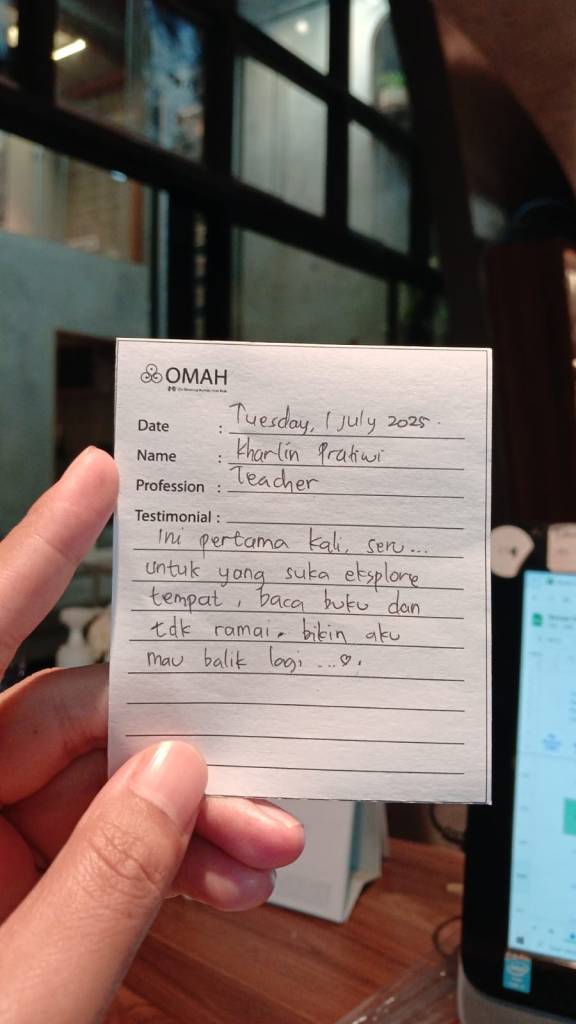 OMAH
Date : Tuesday, 1 July 2025.
Name : Kharlin Pratiwi
Profession : Teacher
Testimonial :
Ini pertama kali, seru...
untuk yang suka eksplore
tempat, baca buku dan
tdk ramai. bikin aku
mau balik lagi ...♡.